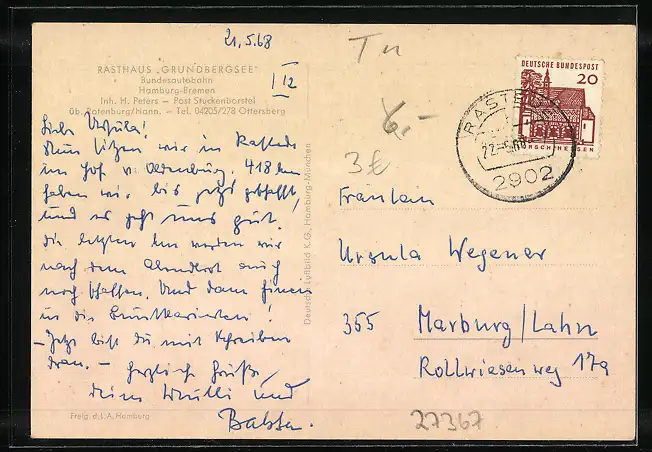 21.5.68
RASTHAUS „GRUNDBERGSEE"
Bundesautobahn
Hamburg-Bremen
Inh. H. Peters — Post Stuckenborstel
üb. Rotenburg/Hann. — Tel. 04205/278 Ottersberg
I 12
Liebe Ursula!
Nun sitzen wir in Rastede
im Hof v. Oldenburg. 418 km
haben wir bis jetzt geschafft
und es geht uns gut.
Die letzten km werden wir
nach dem Abendbrot auch
noch schaffen. Und dann hinein
in die
- Jetzt bist du mit Schreiben
dran. -
herzliche Grüße,
deine und
Deutsche Luftbild K.G., Hamburg-München
Freig. d. L.A. Hamburg
Tn
6,-
3€
DEUTSCHE BUNDESPOST
20
LORSCH HESSEN
RASTEDE
22.-5.68
2902
Fräulein
Ursula Wegener
355 Marburg/Lahn
Rollwiesenweg 17a
27367